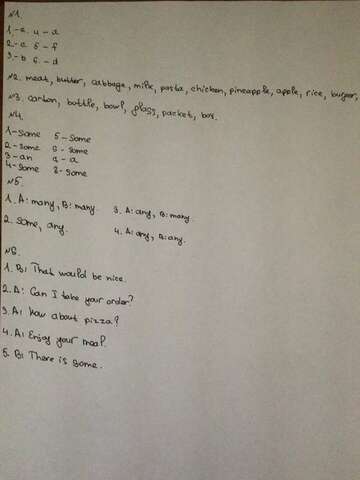 №1.
1.-e. 4-a
2.-c 5-f
3.-b 6.-d
№2. meat, butter, cabbage, milk, pasta, chicken, pineapple, apple, rice, burger,
№3. carton, bottle, bowl, glass, packet, box.
№4.
1-some 5-some
2-some 6-some
3-an 7-a
4-some 8-some
№5.
1. A: many, B: many. 3. A: any, B: many.
2. some, any. 4. A: any, B: any.
№6.
1. B: That would be nice.
2. A: Can I take your order?
3. A: How about pizza?
4. A: Enjoy your meal.
5. B: There is some.